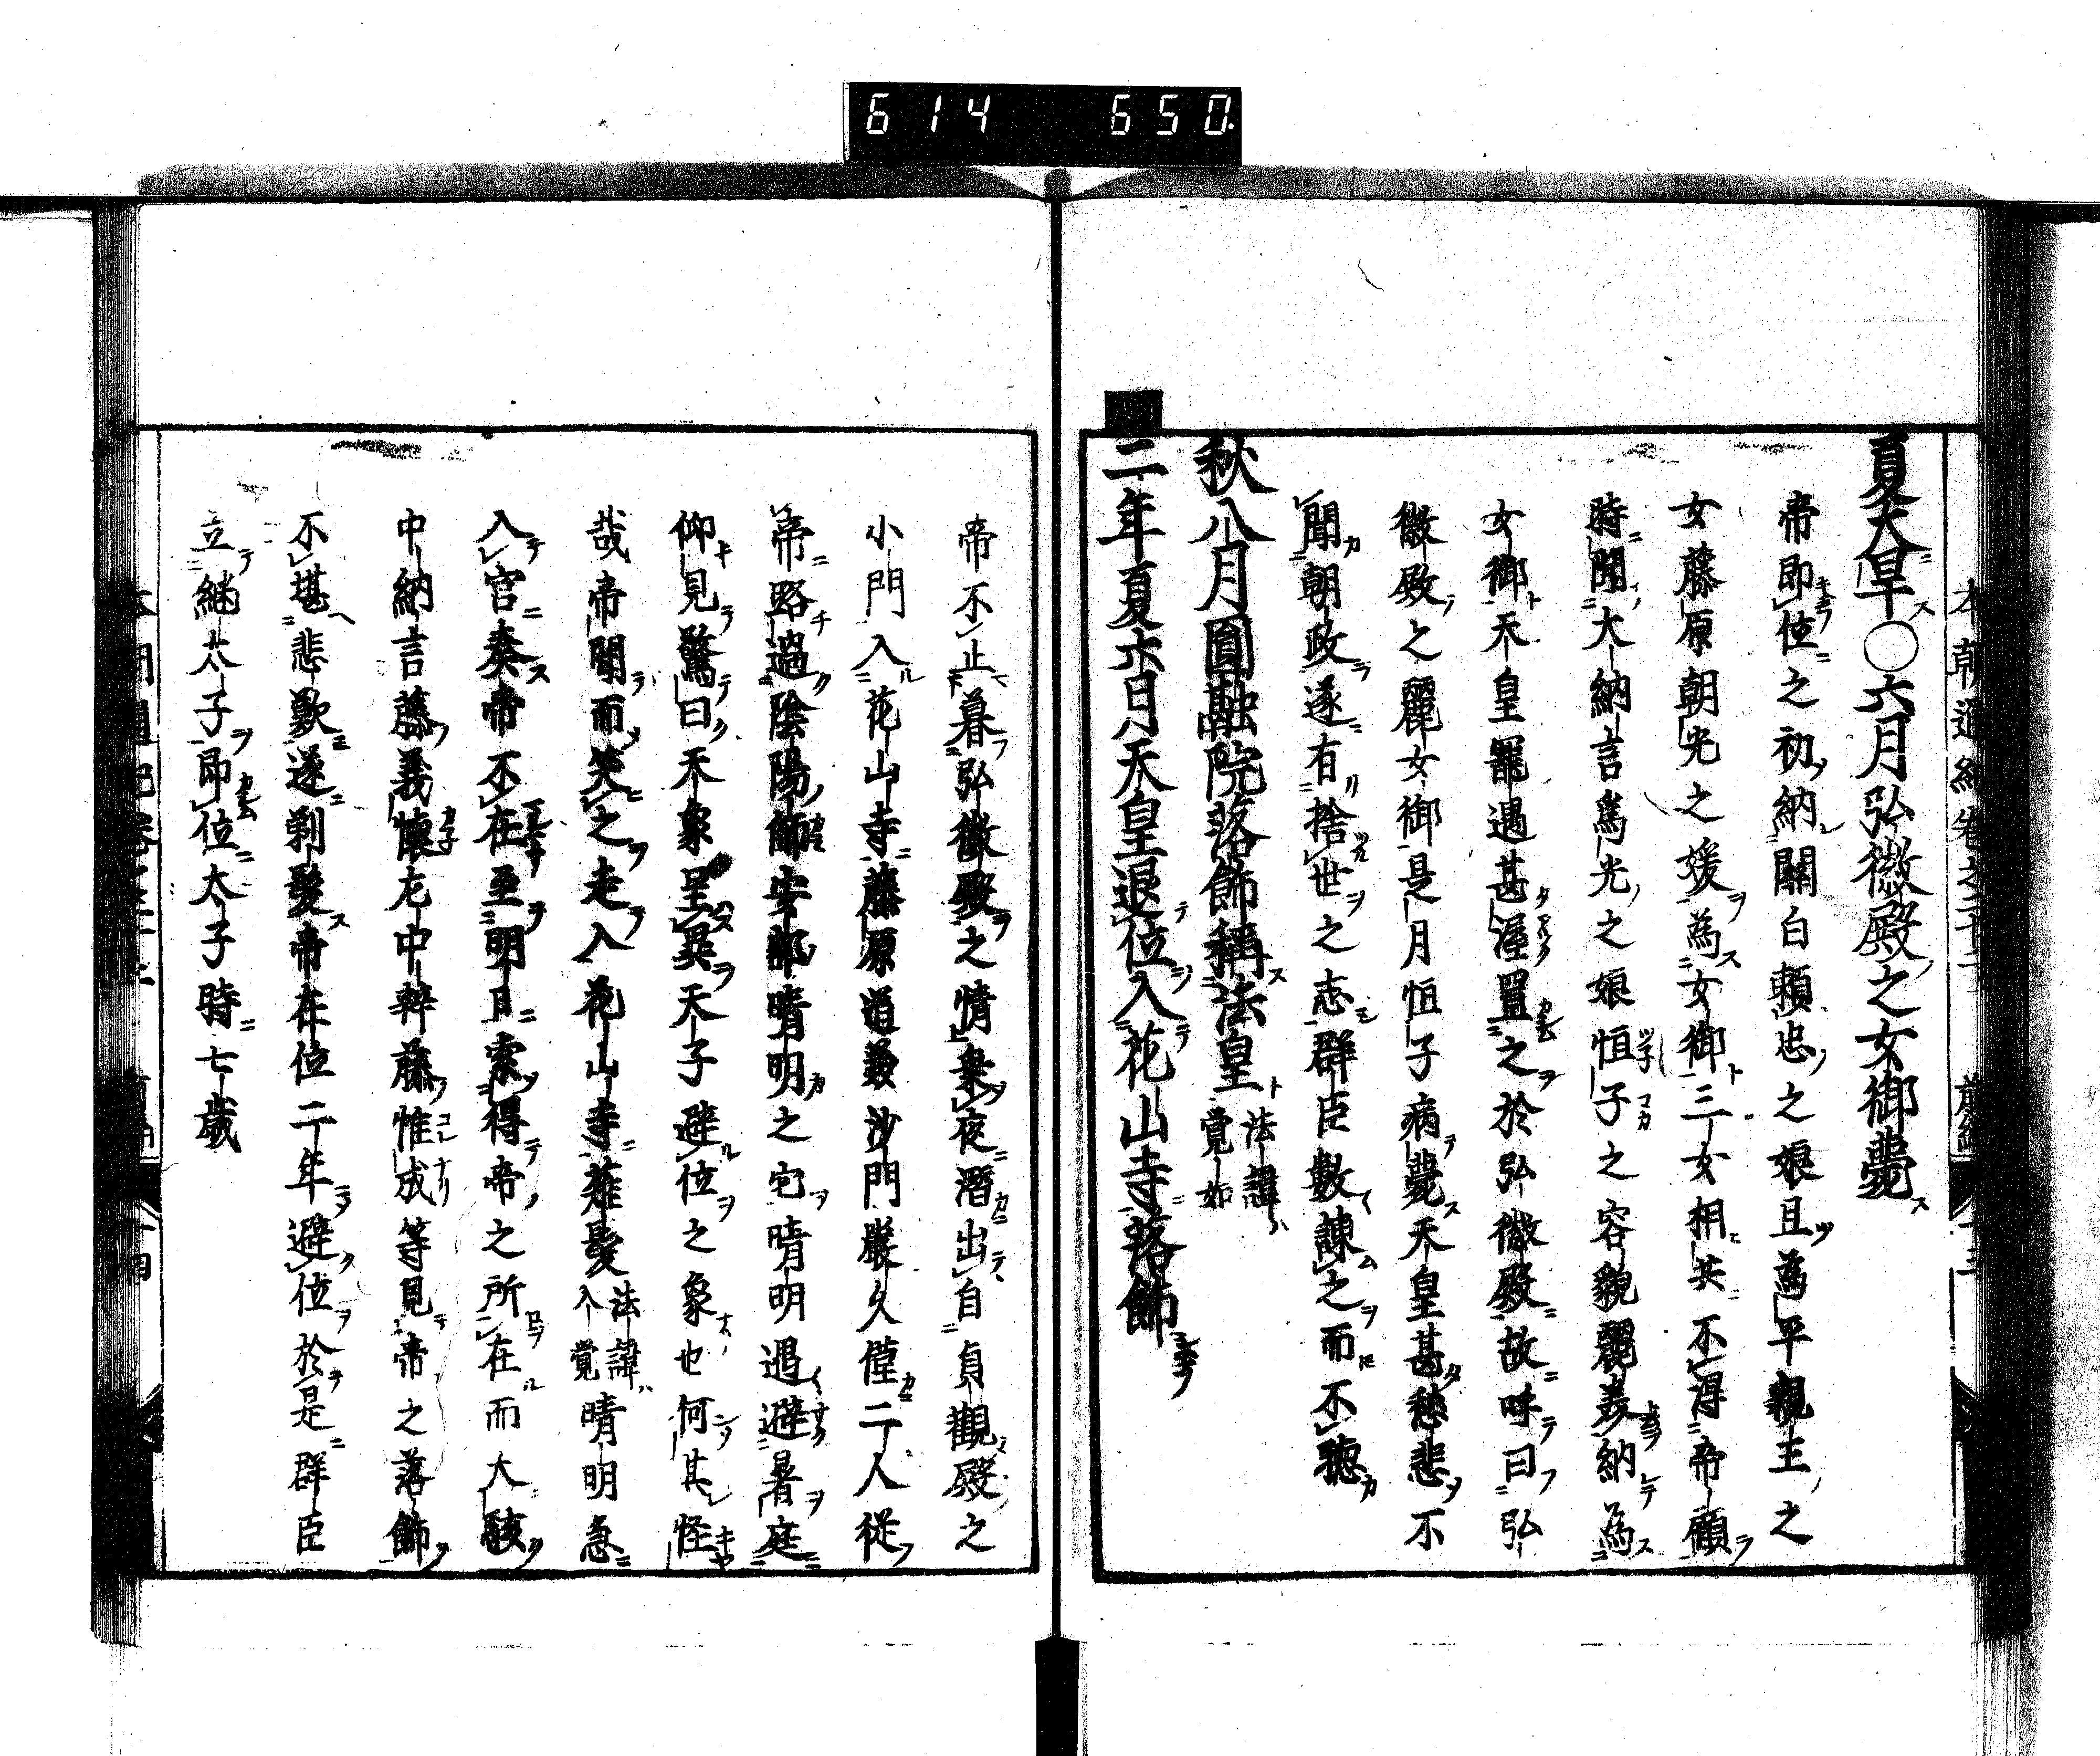 614 650
夏大旱○六月弘徽殿之女御薨
帝即位之初納關白賴忠之娘且爲平親王之
女藤原朝光之媛為女御三女相共不得帝顧
時聞大納言爲光之娘恒子之容貌麗美納為
女御天皇寵遇甚渥置之於弘徽殿故呼曰弘
徽殿之麗女御是月恒子病薨天皇甚愁悲不
聞朝政遂有捨世之志群臣數諫之而不聽
秋八月圓融院落飾稱法皇法諱覚如
二年夏六月天皇退位入花山寺落飾
帝不止暮弘徽殿之情棄夜潛出自貞觀殿之
小門入花山寺藤原道兼沙門嚴久僅二人從
帝路過陰陽師安部晴明之宅晴明遇避暑庭
仰見驚曰天象呈異天子避位之象也何其怪
哉帝聞而笑之走入花山寺薙髪法諱入覚晴明急
入宮奏帝不在至明日索得帝之所在而大駭
中納言藤義懐左中辨藤惟成等見帝之落飾
不堪悲歎遂剃髮帝在位二年避位於是群臣
立継太子即位太子時七歳